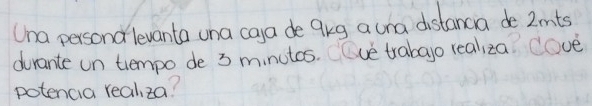 Una persona levanta una caja de 9kg a una distancia de 2mts
durante un tiempo de 3 minutos. ¿Qué trabajo realiza? ¿Qué
potencia realiza?